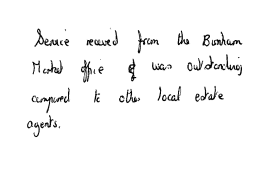 Service received from the Burnham
Market office of was outstanding
compared to other local estate
agents.